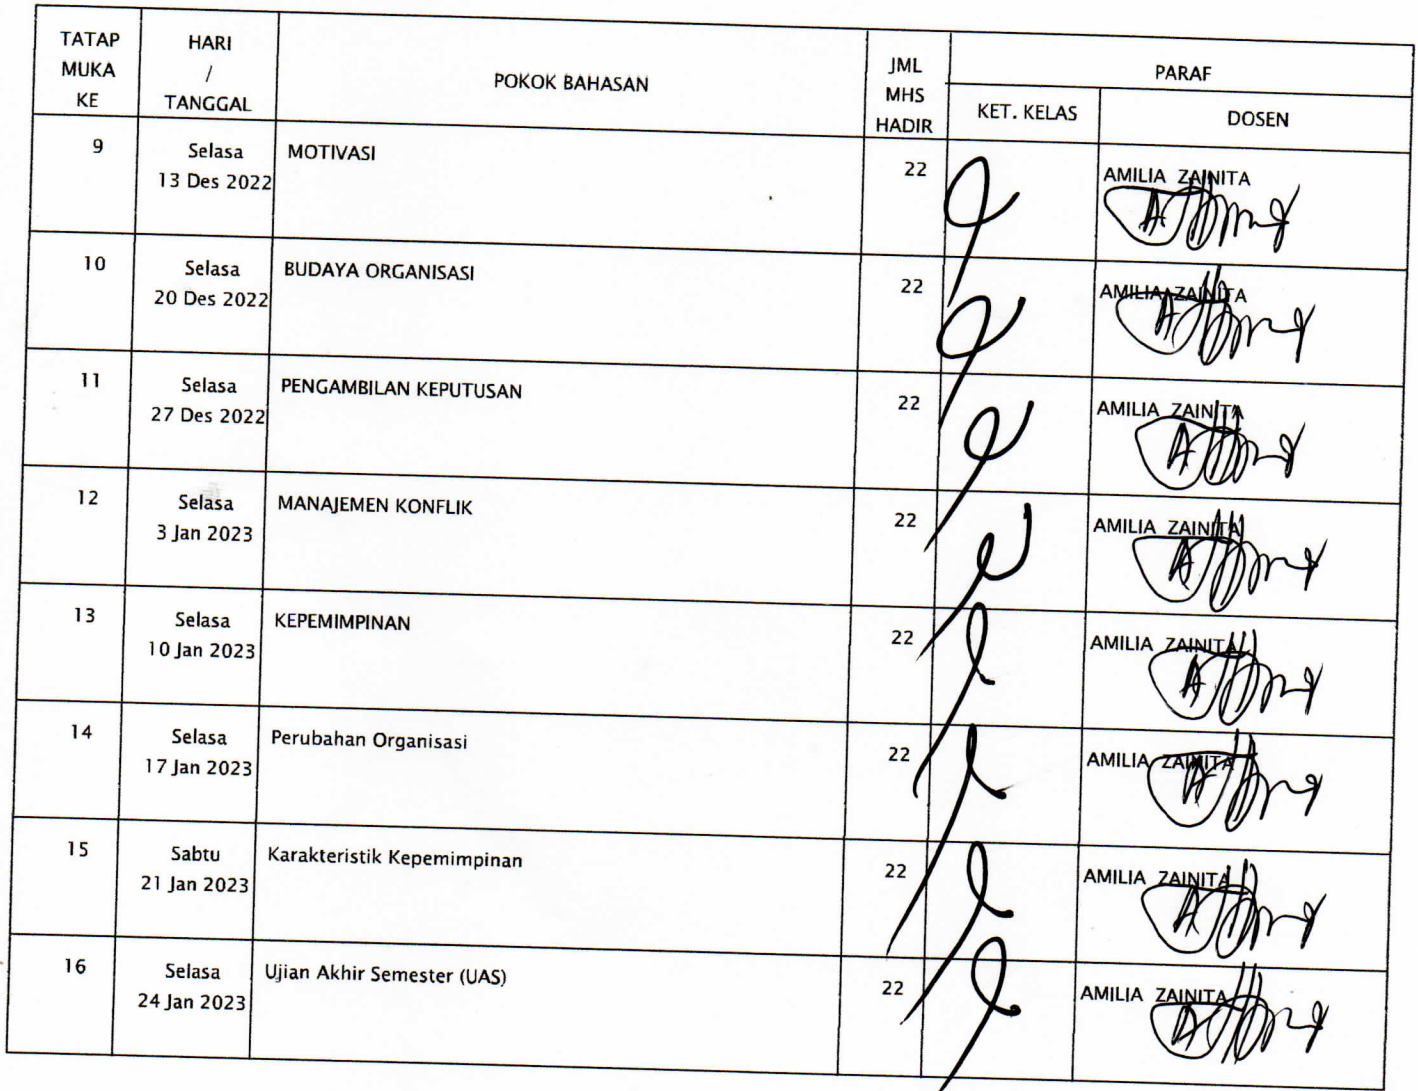 TATAP MUKA KE
HARI / TANGGAL
POKOK BAHASAN
JML MHS HADIR
PARAF
KET. KELAS
DOSEN
9
Selasa
13 Des 2022
MOTIVASI
22
AMILIA ZAINITA
10
Selasa
20 Des 2022
BUDAYA ORGANISASI
22
AMILIA ZAINITA
11
Selasa
27 Des 2022
PENGAMBILAN KEPUTUSAN
22
AMILIA ZAINITA
12
Selasa
3 Jan 2023
MANAJEMEN KONFLIK
22
AMILIA ZAINITA
13
Selasa
10 Jan 2023
KEPEMIMPINAN
22
AMILIA ZAINITA
14
Selasa
17 Jan 2023
Perubahan Organisasi
22
AMILIA ZAINITA
15
Sabtu
21 Jan 2023
Karakteristik Kepemimpinan
22
AMILIA ZAINITA
16
Selasa
24 Jan 2023
Ujian Akhir Semester (UAS)
22
AMILIA ZAINITA